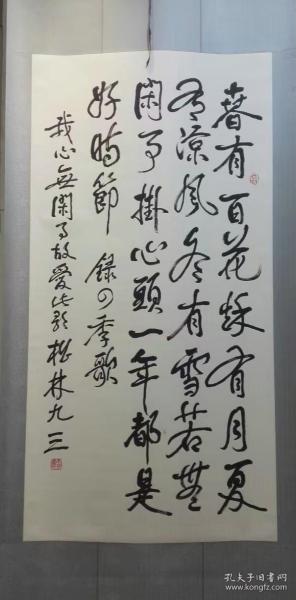 春有百花秋有月夏
有涼風冬有雪若無
閑事掛心頭一年都是
好時節 錄四季歌
我心無閑事故愛此歌 松林九三
孔夫子旧书网
www.kongfz.com